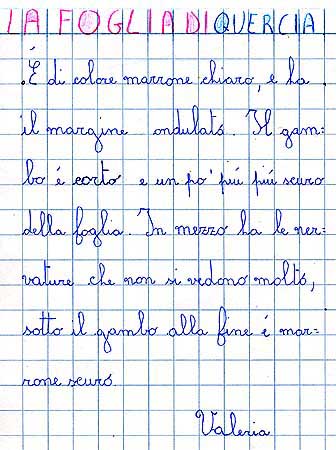 LA FOGLIA DI QUERCIA
.É di colore marrone chiaro, e ha
il margine ondulato. Il gam=
bo é corto e un po' piú piú scuro
della foglia. In mezzo ha le ner=
vature che non si vedono molto,
sotto il gambo alla fine é mar=
rone scuro.
Valeria